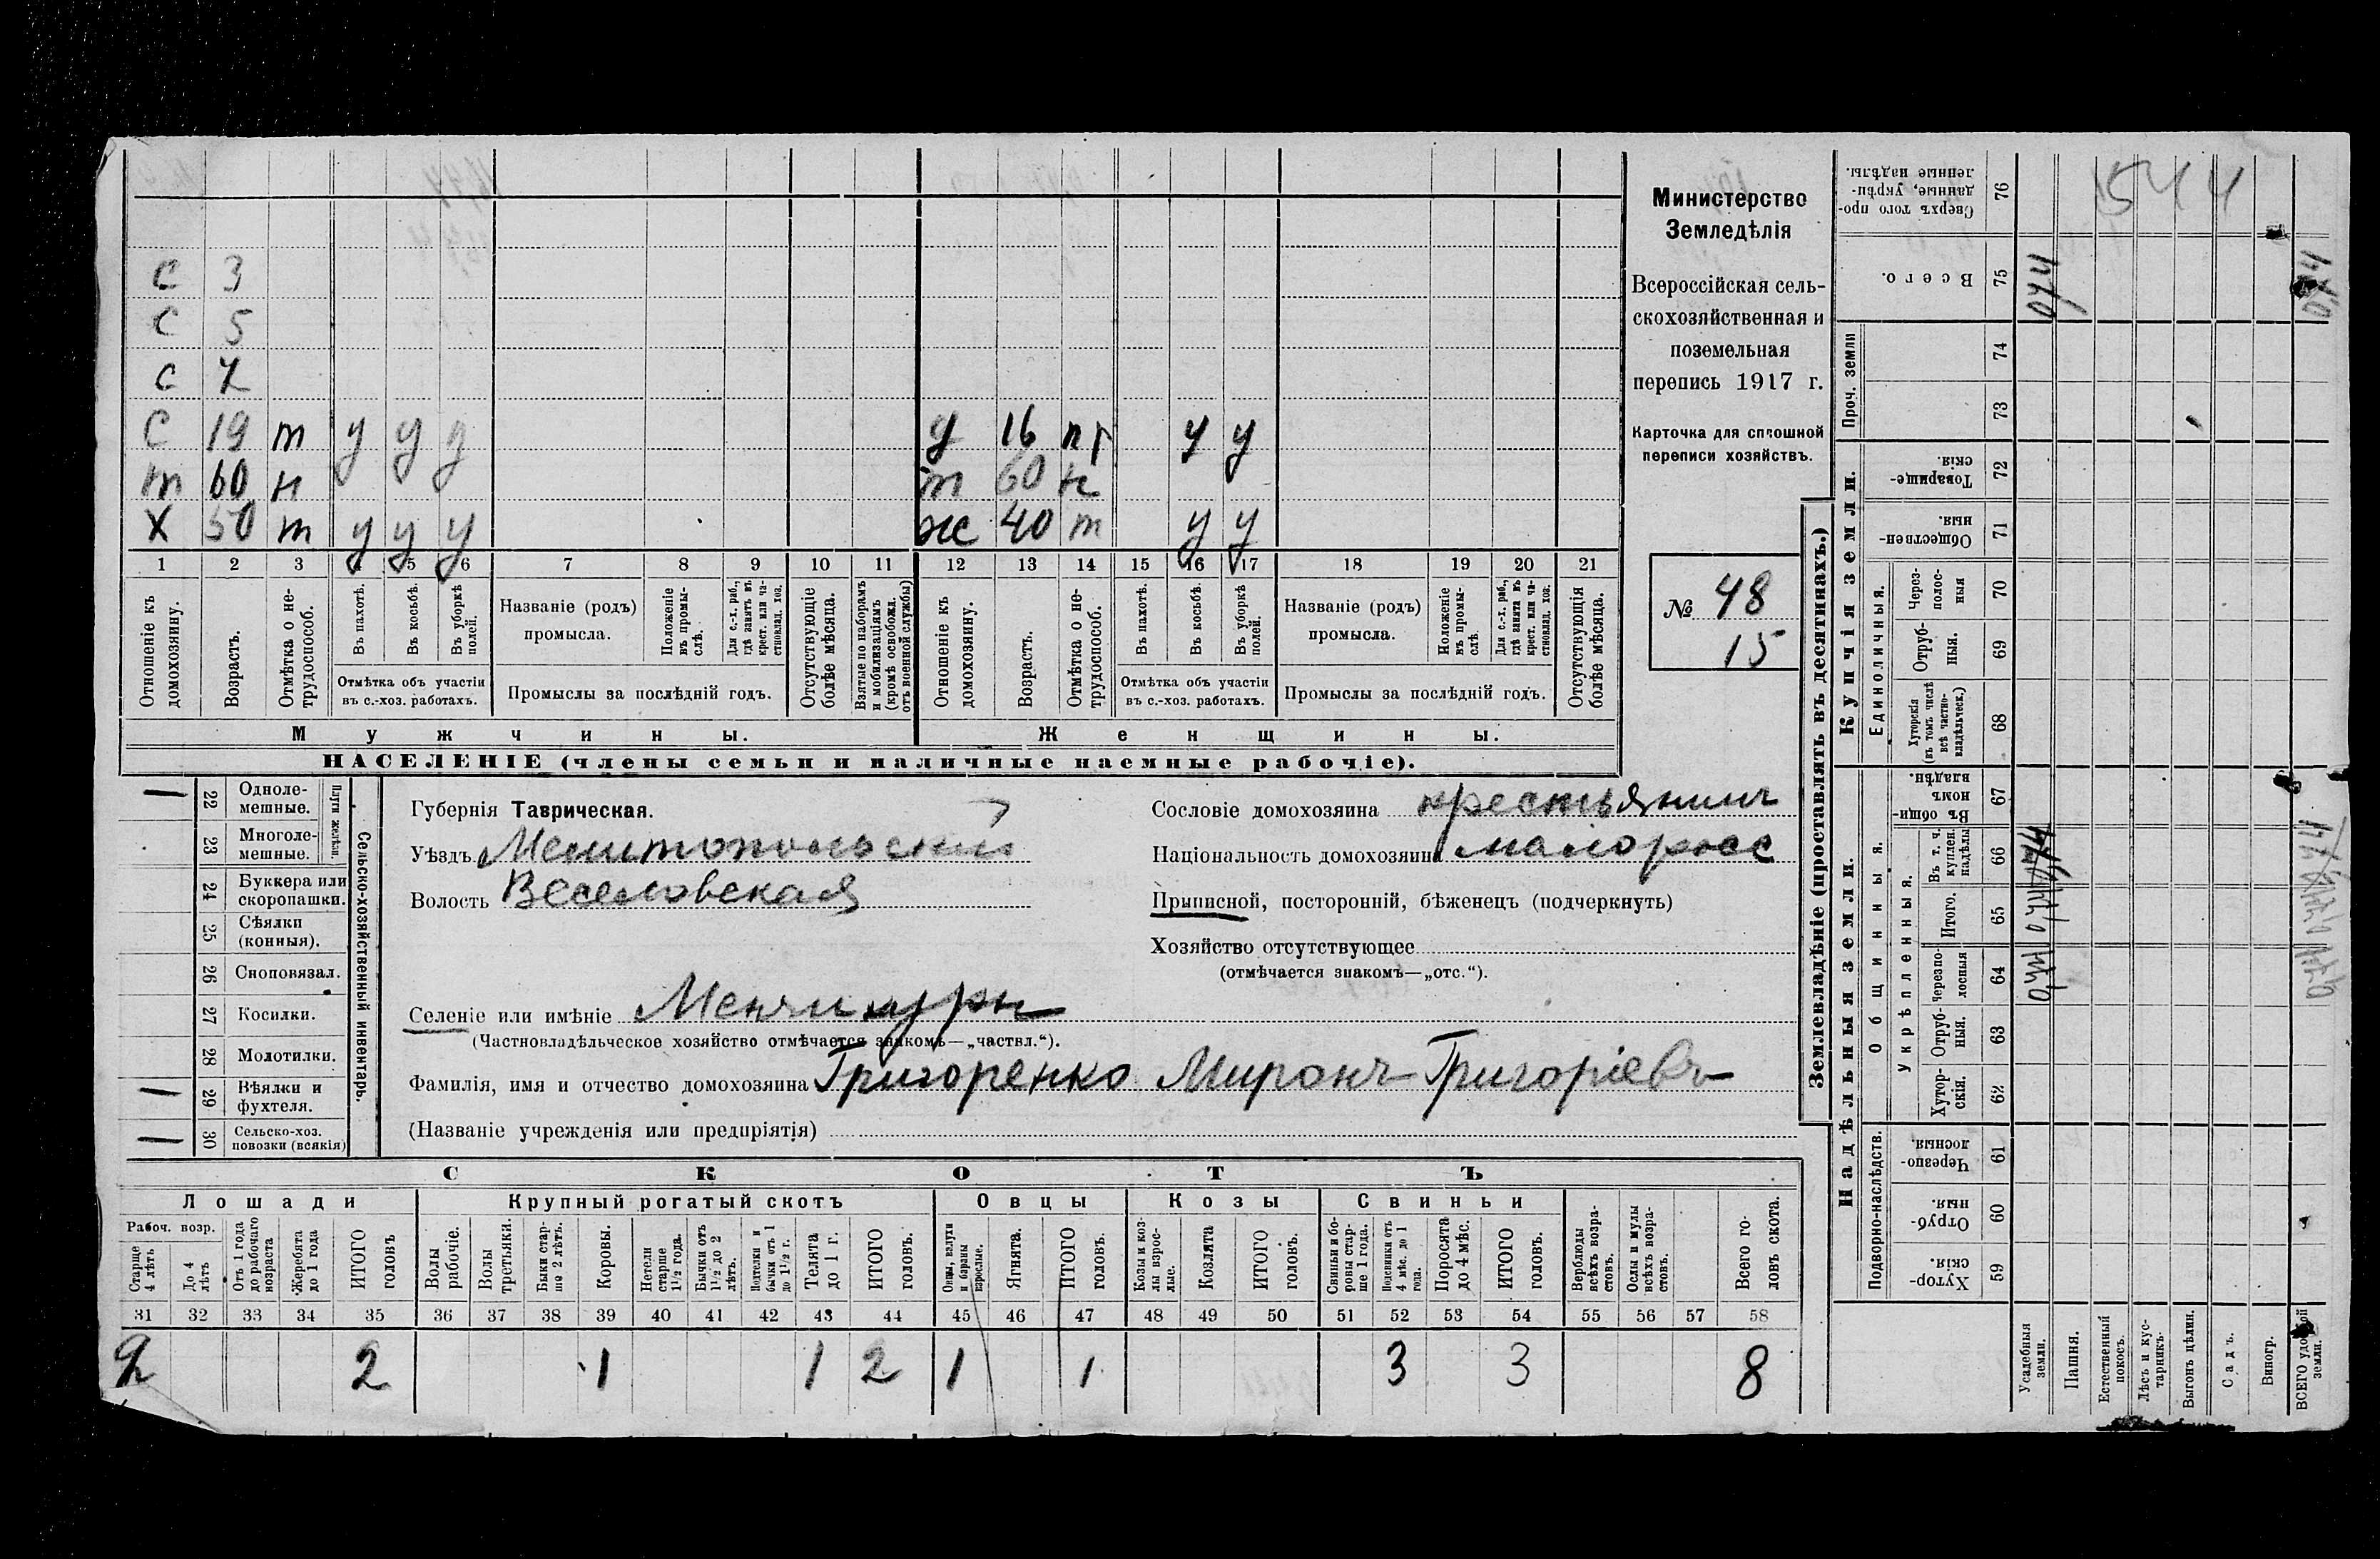 С 3
С 5
С 7
С 19 т у у у д 16 пт у у
т 60 н т 60 н
Х 50 т у у у ж 40 т у у
1 2 3 4 5 6 7 8 9 10 11 12 13 14 15 16 17 18 19 20 21
Отношеніе къ домохозяину.
Возрастъ.
Отмѣтка о нетрудоспособ.
Въ пахотѣ.
Въ косьбѣ.
Въ уборкѣ полей.
Отмѣтка объ участіи
въ с.-хоз. работахъ.
Названіе (родъ)
промысла.
Положеніе въ промыслѣ.
Для с.-х. раб., гдѣ занятъ въ крест. или частновлад. хоз.
Промыслы за послѣдній годъ.
Отсутствующіе болѣе мѣсяца.
Взятые по наборамъ и мобилизаціямъ (кромѣ освобожд. отъ военной службы)
Отношеніе къ домохозяину.
Возрастъ.
Отмѣтка о нетрудоспособ.
Въ пахотѣ.
Въ косьбѣ.
Въ уборкѣ полей.
Отмѣтка объ участіи
въ с.-хоз. работахъ.
Названіе (родъ)
промысла.
Положеніе въ промыслѣ.
Для с.-х. раб., гдѣ занята въ крест. или частновлад. хоз.
Промыслы за послѣдній годъ.
Отсутствующія болѣе мѣсяца.
Мужчины. Женщины.
НАСЕЛЕНІЕ (члены семьи и наличные наемные рабочіе).
Министерство
Земледѣлія
Всероссійская сель-
скохозяйственная и
поземельная
перепись 1917 г.
Карточка для сплошной
переписи хозяйствъ.
№ 48
15
22 Одноле-
мешные.
23 Многоле-
мешные.
Плуги желѣзн.
24 Буккера или
скоропашки.
25 Сѣялки
(конныя).
26 Сноповязал.
27 Косилки.
28 Молотилки.
29 Вѣялки и
фухтеля.
30 Сельско-хоз.
повозки (всякія)
Сельско-хозяйственный инвентарь.
Губернія Таврическая.
Уѣздъ Мелитопольский
Волость Веселовская
Сословіе домохозяина крестьянинъ
Національность домохозяина малоросс
Приписной, посторонній, бѣженецъ (подчеркнуть)
Хозяйство отсутствующее
(отмѣчается знакомъ—„отс.“).
Селеніе или имѣніе Менчикуры
(Частновладѣльческое хозяйство отмѣчается знакомъ—„частвл.“).
Фамилія, имя и отчество домохозяина Григоренко Миронъ Григоріевъ
(Названіе учрежденія или предпріятія)
СКОТЪ
Лошади Крупный рогатый скотъ Овцы Козы Свиньи
Рабоч. возр.
Старше 4 лѣтъ
До 4 лѣтъ
Отъ 1 года до рабочаго возраста
Жеребята до 1 года
ИТОГО головъ
Волы рабочіе.
Волы третьяки.
Быки старше 2 лѣтъ.
Коровы.
Нетели старше 1½ года.
Бычки отъ 1½ до 2 лѣтъ.
Подтелки и бычки отъ 1 до 1½ г.
Телята до 1 г.
ИТОГО головъ.
Овцы, валухи и бараны взрослые.
Ягнята.
ИТОГО головъ.
Козы и козлы взрослые.
Козлята
ИТОГО головъ.
Свиньи и боровы старше 1 года.
Подсвинки отъ 4 мѣс. до 1 года.
Поросята до 4 мѣс.
ИТОГО головъ.
Верблюды всѣхъ возрастовъ.
Ослы и мулы всѣхъ возрастовъ.
Всего головъ скота.
31 32 33 34 35 36 37 38 39 40 41 42 43 44 45 46 47 48 49 50 51 52 53 54 55 56 57 58
2 2 1 1 2 1 1 3 3 8
Землевладѣніе (проставлять въ десятинахъ.)
Надѣльныя земли. Купчія земли. Проч. земли
Подворно-наслѣдств. Общинныя. Единоличныя.
Укрѣпленныя.
Хуторскія. 59
Отрубныя. 60
Черезполосныя. 61
Хуторскія. 62
Отрубныя. 63
Черезполосныя 64
Итого. 65
Въ т. ч. куплен. надѣлы 66
Въ общиномъ владѣн. 67
Хуторскія (въ томъ числѣ всѣ частновладѣльческ.) 68
Отрубныя. 69
Черезполосныя 70
Общественныя. 71
Товарищескія. 72
73
74
Всего. 75
Сверхъ того проданные, укрѣпленные надѣлы. 76
Усадебныя земли.
Пашня.
Естественный покосъ.
Лѣсъ и кустарникъ.
Выгонъ цѣлин.
Садъ.
Виногр.
ВСЕГО удобной земли.
1544